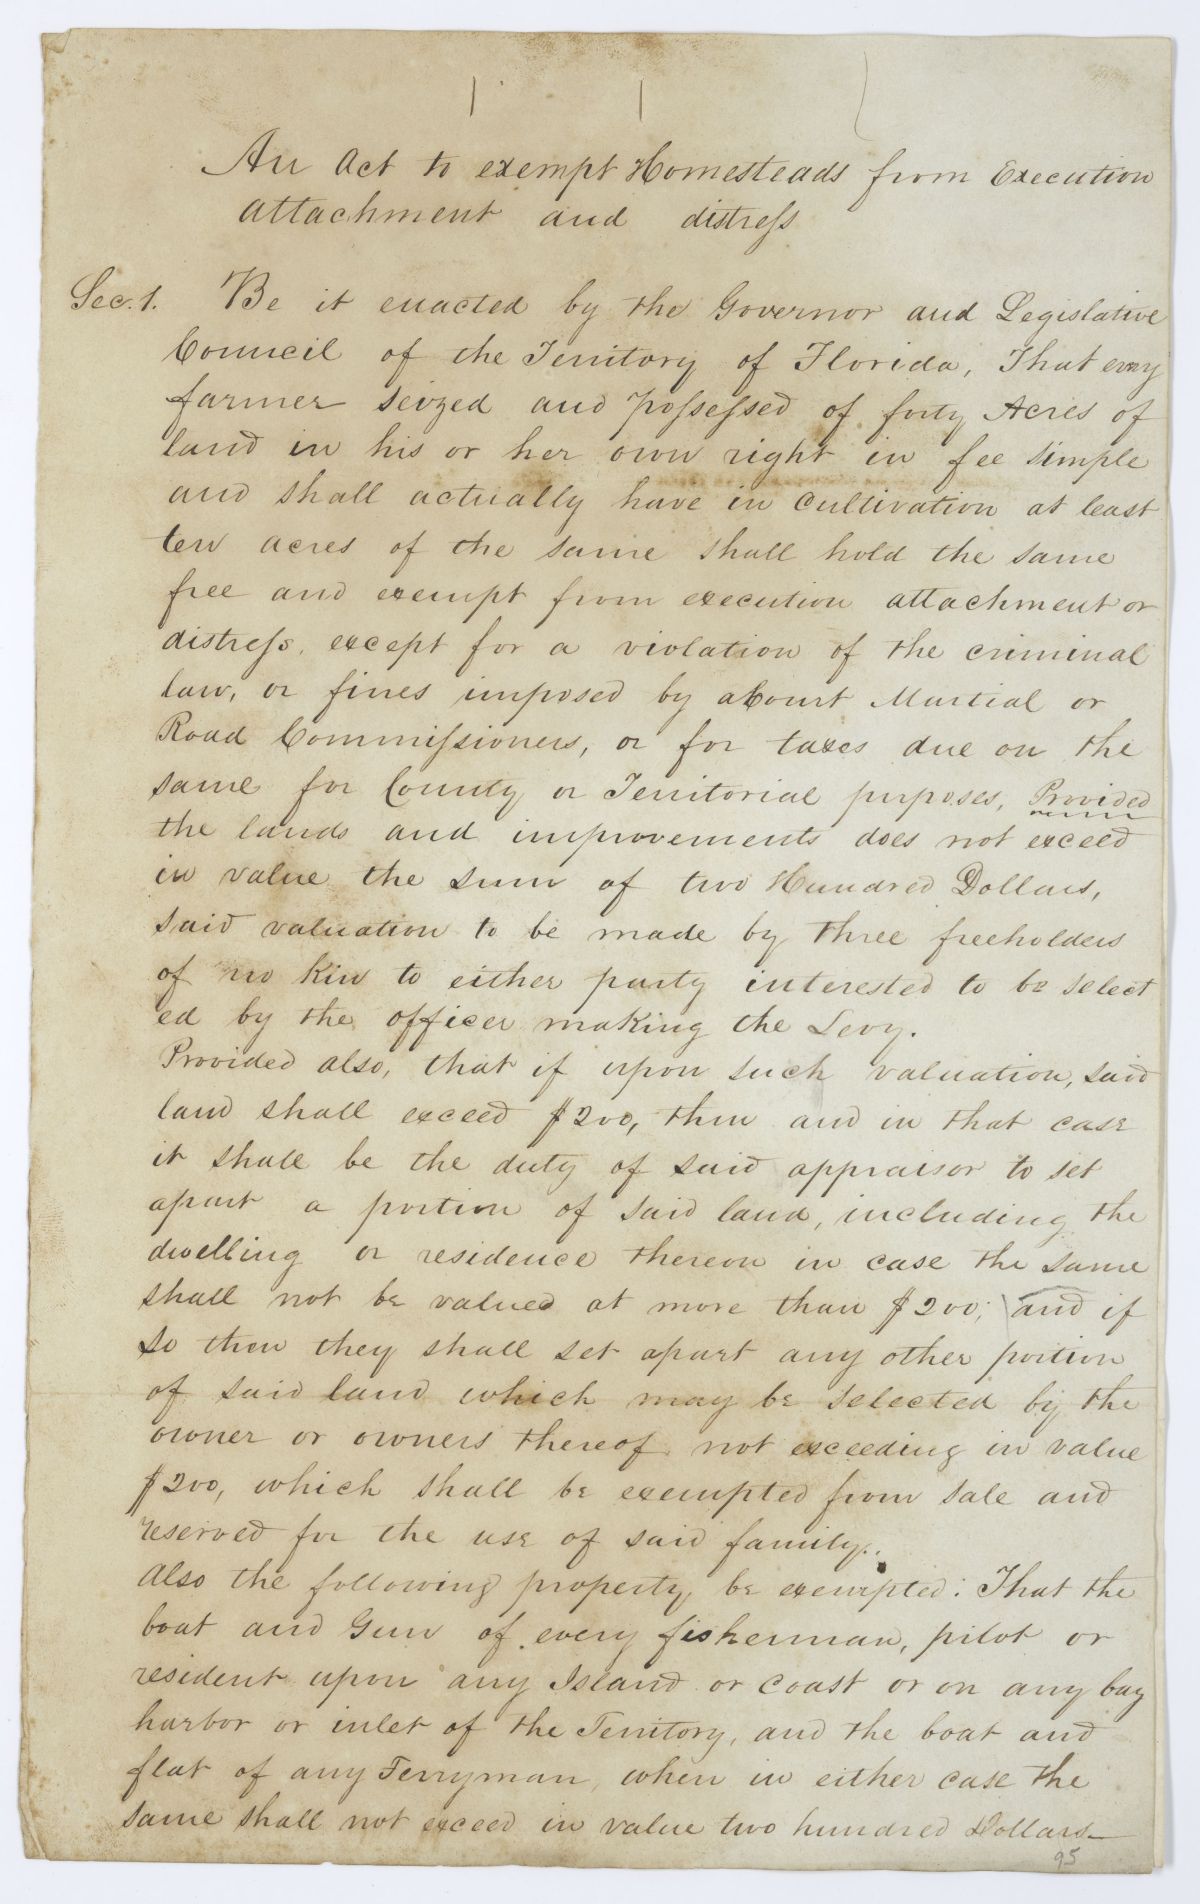 An Act to exempt Homesteads from Execution
attachment and distress
Sec. 1. Be it enacted by the Governor and Legislative
Council of the Territory of Florida, That every
farmer seized and possessed of forty Acres of
land in his or her own right in fee simple
and shall actually have in cultivation at least
ten acres of the same shall hold the same
free and exempt from execution attachment or
distress, except for a violation of the criminal
law, or fines imposed by a Court Martial or
Road Commissioners, or for taxes due on the
same for County or Territorial purposes, Provided
the lands and improvements does not exceed
in value the sum of two Hundred Dollars,
said valuation to be made by three freeholders
of no kin to either party interested to be select
ed by the officer making the Levy.
Provided also, that if upon such valuation, said
land shall exceed $200, then and in that case
it shall be the duty of said appraisor to set
apart a portion of said land, including the
dwelling or residence thereon in case the same
shall not be valued at more than $200; and if
so then they shall set apart any other portion
of said land which may be selected by the
owner or owners thereof not exceeding in value
$200, which shall be exempted from sale and
reserved for the use of said family.
Also the following property be exempted: That the
boat and Gun of every fisherman, pilot or
resident upon any Island or coast or on any bay
harbor or inlet of the Territory, and the boat and
flat of any Ferryman, when in either case the
same shall not exceed in value two hundred Dollars
95